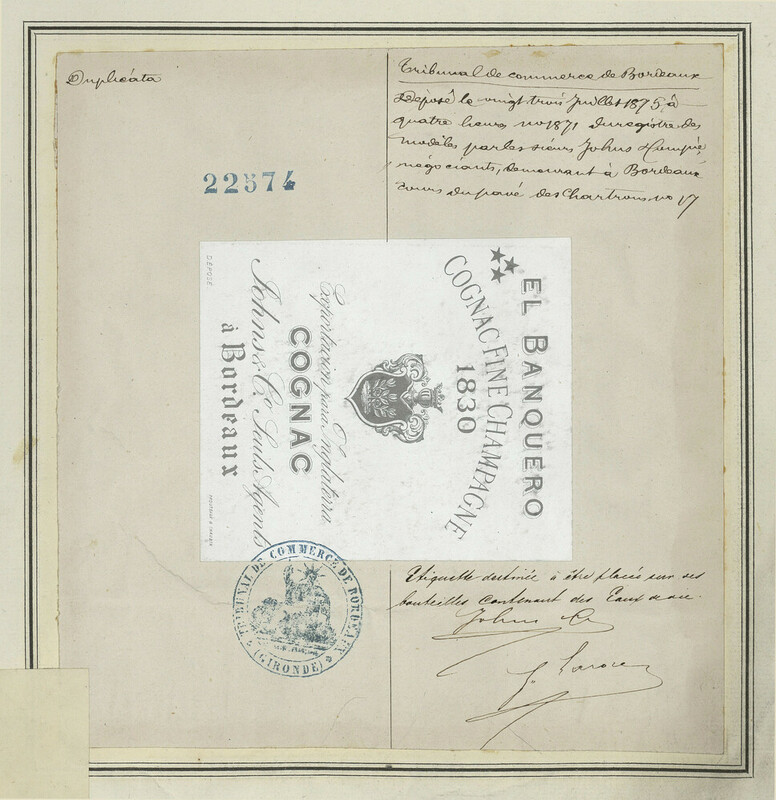 Duplicáta
22574
Tribunal de commerce de Bordeaux
Déposé le vingt trois Juillet 1875 à
quatre heures no 1871 du registre des
modèles par les sieurs Johns &
négociants, demeurant à Bordeaux
cours du pavé des Chartrons no 17
EL BANQUERO
COGNAC FINE CHAMPAGNE
1830
Exportacion para Inglaterra
COGNAC
Johns & Co. Seuls Agents
à Bordeaux
DÉPOSÉ
TRIBUNAL DE COMMERCE DE BORDEAUX
(GIRONDE)
Etiquette destinée à être placée sur des
bouteilles contenant des Eaux de vie.
Johns Co